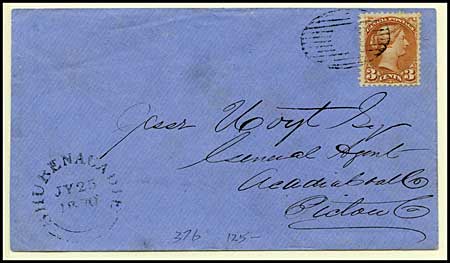 CANADA POSTAGE
3 CENTS 3
Jesse Hoyt Esq
General Agent
Acadia Coal Co
Pictou Co
SHUBENACADIE
JY 25
1870
376 125-